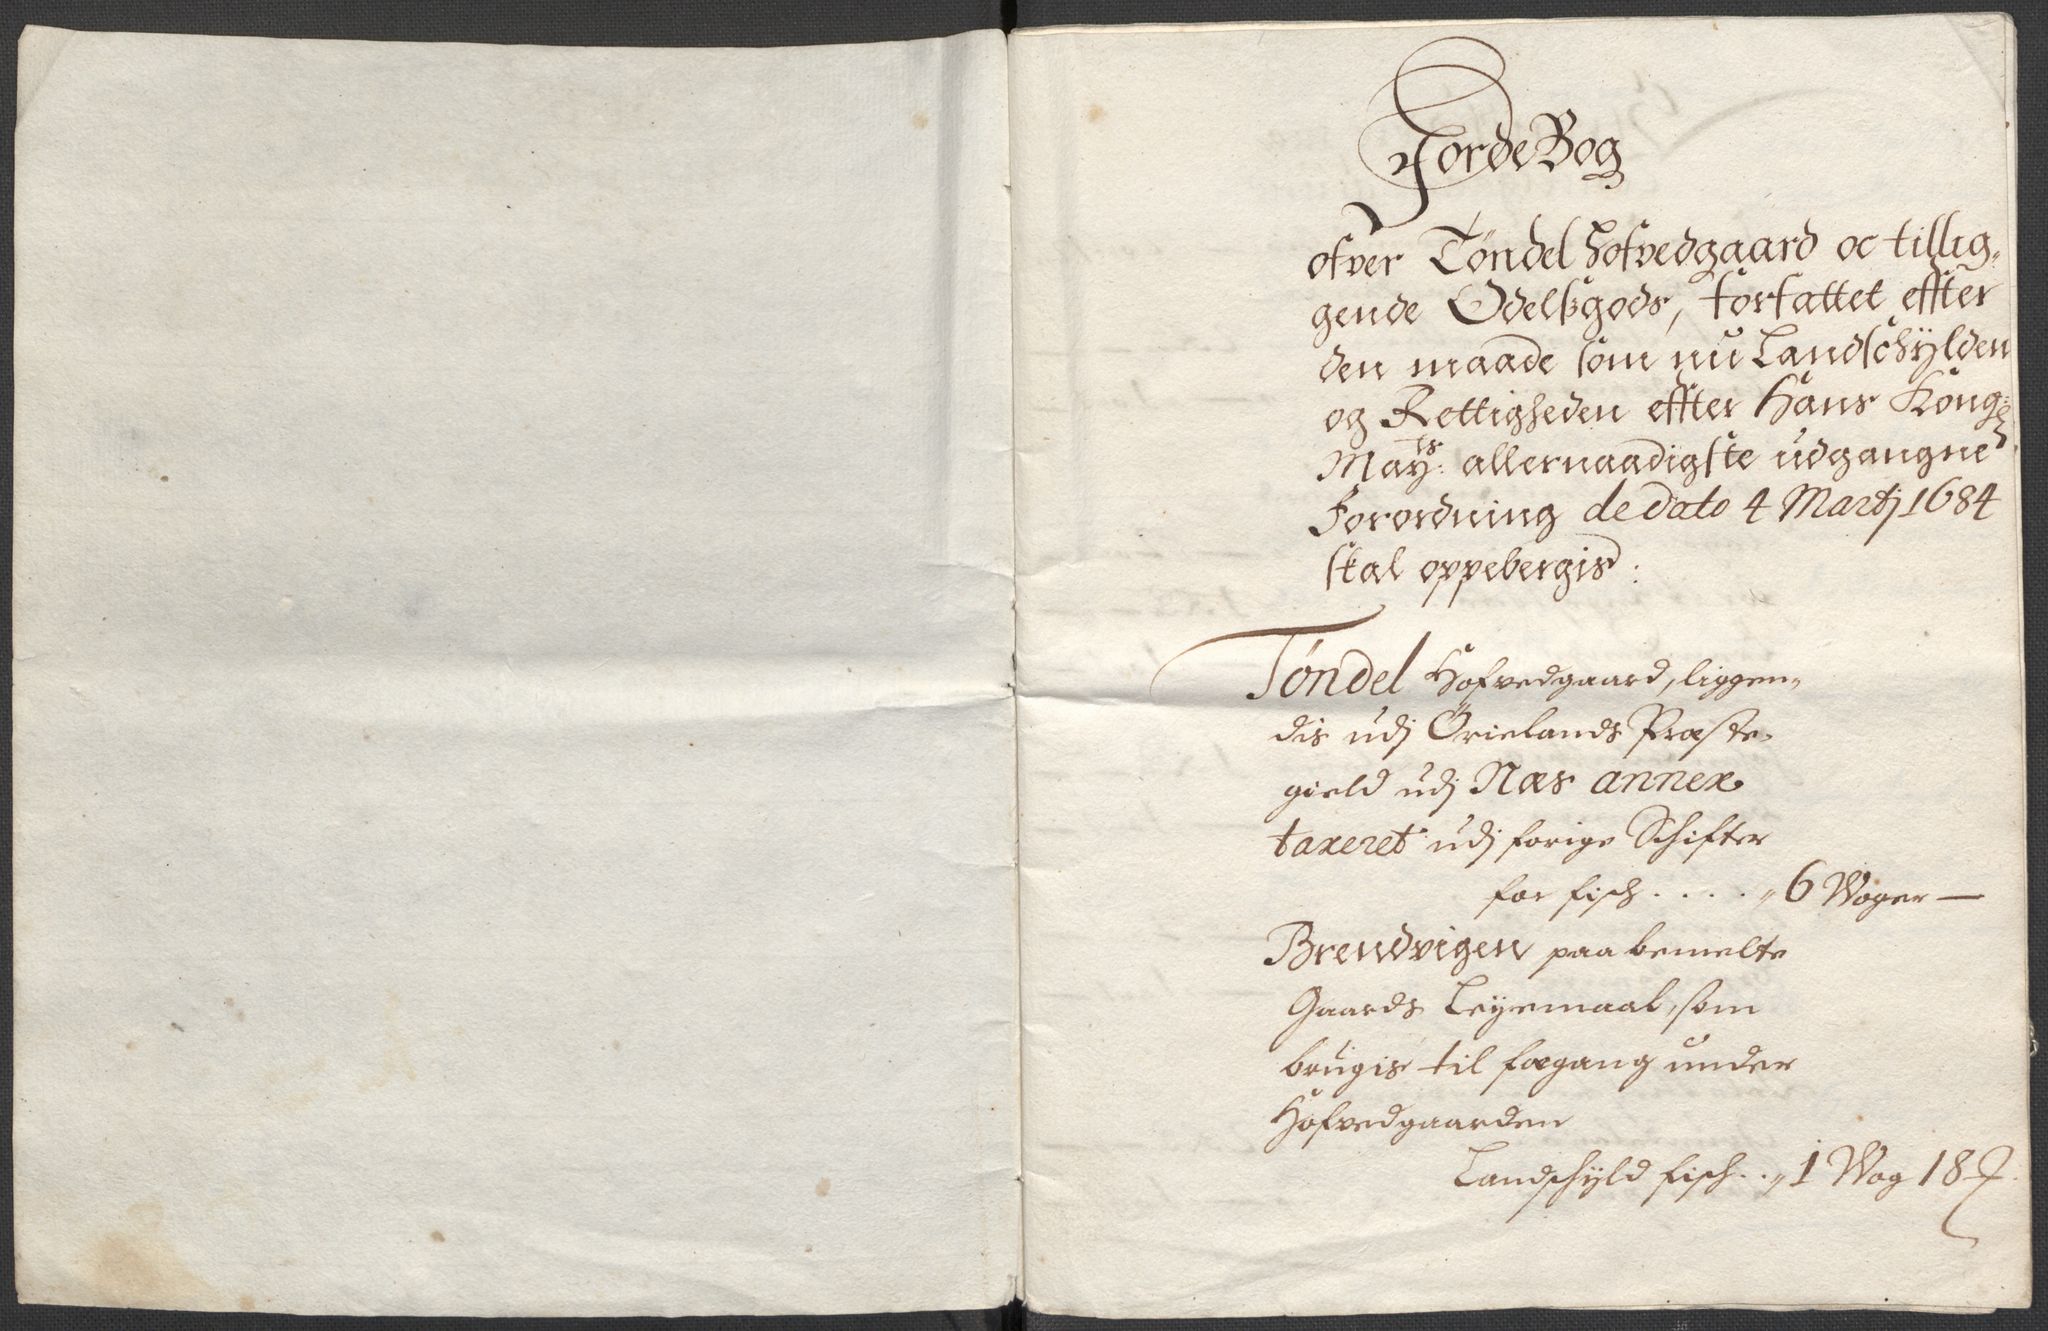 JordeBog
ofver Tøndel Hofvedgaard oc tillig„
gende Odelsgods, forfattet effter
den maade som nu Landschÿlden
og Rettigheden effter Hans Kong:
Mayts: allernaadigste udgangne
Forordning de dato 4 Martij 1684
skal oppebergis:
Tøndel Hofvedgaard, liggen„
dis udj Örielands Præste„
gield udj Næs annex
taxeret udj forige Schifter
for fisch . . . . „ 6 Woger —
Brendvigen paa bemelte
Gaards Leyemaal, som
brugis til fægang under
Hofvedgaarden
Landschyld fisch . . „ 1 Wog 18